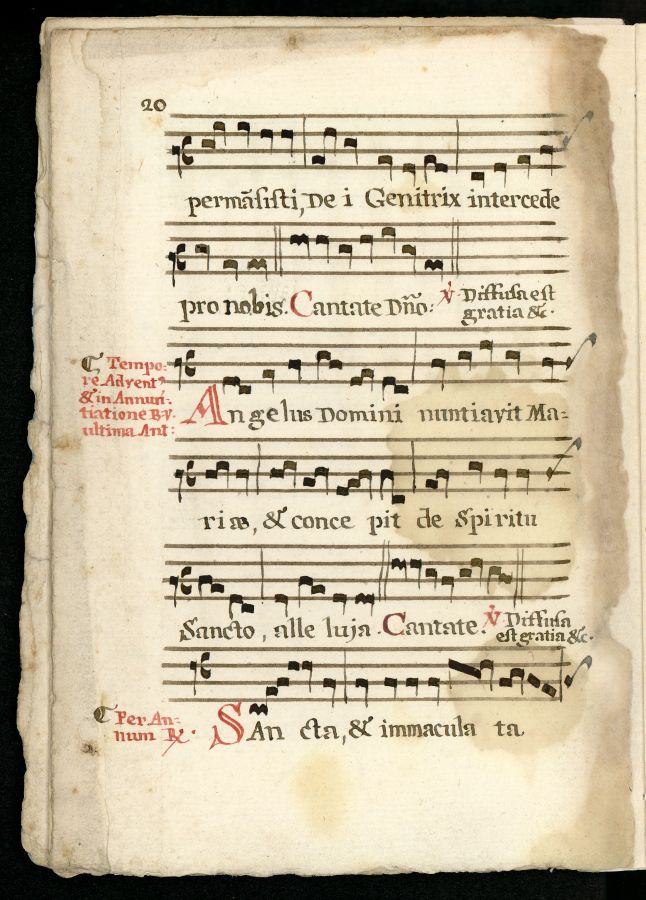 20
permãsisti, De i Genitrix intercede
pro nobis. Cantate Dño: ℣. Diffusa est
gratia &c.
Tempo:
re Advent9
& in Annun:
tiatione B.V.
ultima Ant:
Angelus Domini nuntiavit Ma=
riæ, & conce pit de Spiritu
Sancto, alle luja. Cantate. ℣ Diffusa
est gratia &c.
Per An=
num ℟.
SAn cta, & immacula ta